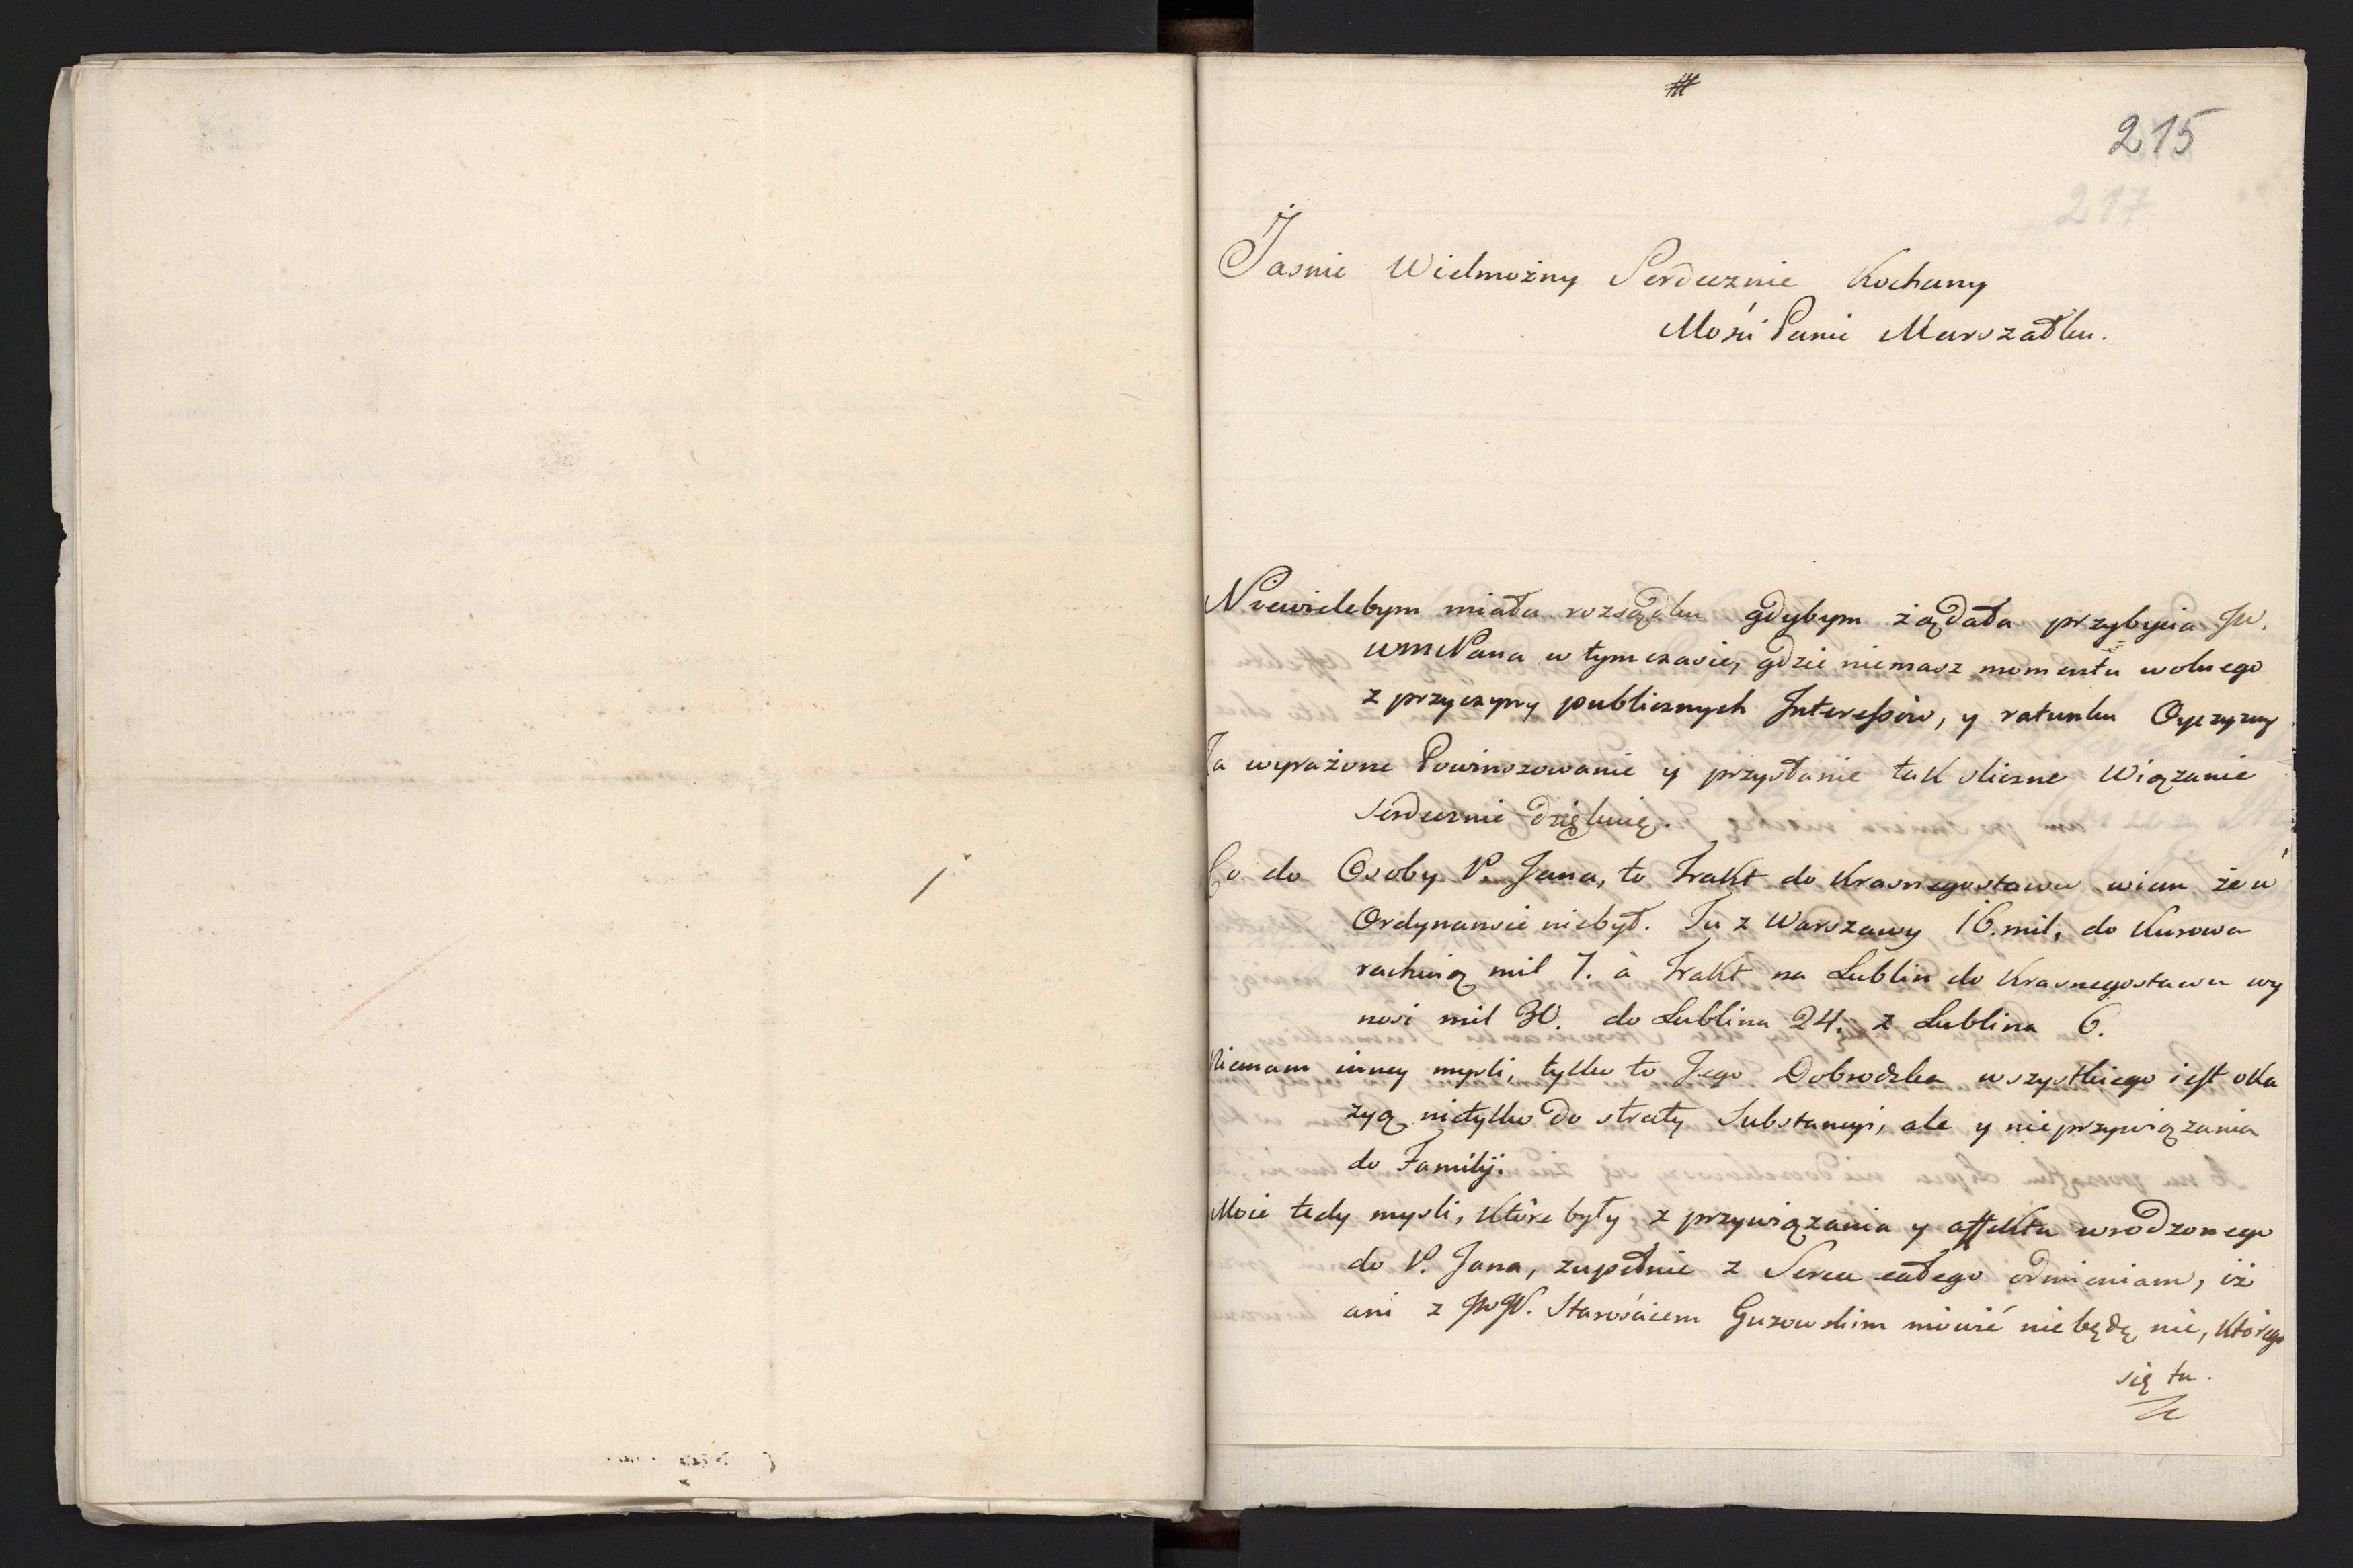 215
217
Jasnie Wielmożny Serdecznie Kochany
Mośi Panie Marszałku.
Niewielebym miała rozsądku gdybym żądała przybycia JW.
WmPana w tym czasie, gdzie niemasz momentu wolnego
z przyczyny publicznych Interessów, y ratunku Oyczyzny
Za wyrażone Powinszowanie y przysłanie tak sliczne Wiązanie
serdecznie dziękuię.
Co do Osoby P. Jana, to trakt do Krasnegostawu wiem że w
Ordynansie niebył. Tu z Warszawy 16. mil, do Kurowa
rachuią mil 7. à trakt na Lublin do Krasnegostawu wy
nosi mil 30. do Lublina 24. z Lublina 6.
Niemam inney mysli, tylko to Jego wszystkiego iest oka
zyą nietylko do straty Substancyi, ale y nieprzywiązania
do Familij.
Moie tedy mysli, które były z przywiązania y affektu wrodzonego
do P. Jana, zupełnie z Serca całego odmieniam, iż
ani z JWP. Starościcem Guzowskim mówić niebędę nic, którego
się tu.